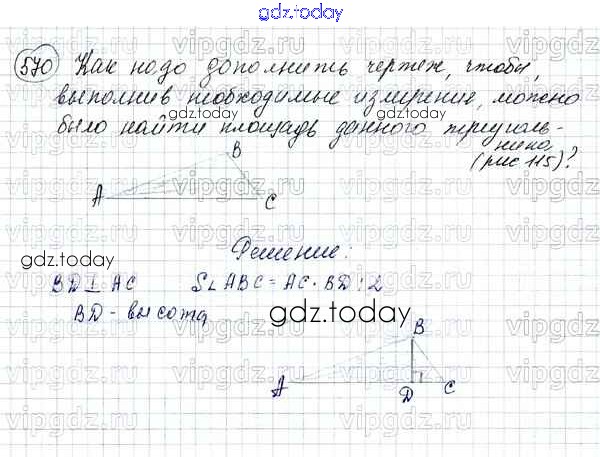 gdz.today
570 Как надо дополнить чертеж, чтобы,
выполнив необходимые измерение, можно
было найти площадь данного треуголь-
ника
(рис 115)?
B
A
C
gdz.today
Решение:
BD⊥AC S∠ABC = AC · BD : 2
BD - высота
gdz.today
B
A
D
C
gdz.today
vipgdz.ru